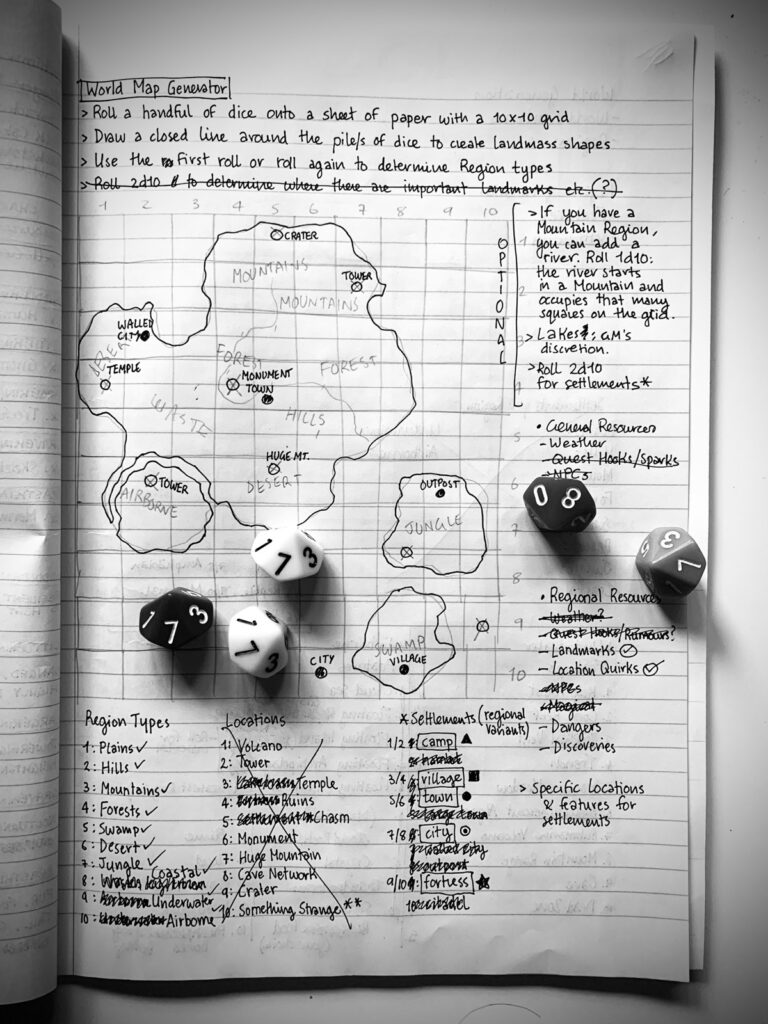 World Map Generator
> Roll a handful of dice onto a sheet of paper with a 10x10 grid
> Draw a closed line around the pile/s of dice to create landmass shapes
> Use the First roll or roll again to determine Region types
> Roll 2d10 to determine where there are important landmarks etc. (?)
1 2 3 4 5 6 7 8 9 10
CRATER
MOUNTAINS
TOWER
MOUNTAINS
WALLED
CITY
DESERT
TEMPLE
FOREST
FOREST
MONUMENT
TOWN
WASTE
HILLS
HUGE MT.
DESERT
TOWER
AIRBORNE
OUTPOST
JUNGLE
SWAMP
VILLAGE
CITY
1
2
3
5
6
7
8
9
10
OPTIONAL
> If you have a
Mountain Region,
you can add a
river. Roll 1d10:
the river starts
in a Mountain and
occupies that many
squares on the grid.
> Lakes: GM's
discretion.
> Roll 2d10
for settlements*
• General Resources
- Weather
- Quest Hooks/Sparks
- NPCs
0 8
3 7 1
1 7 3
1 7 3
1 7 3
• Regional Resources
- Weather?
- Quest Hooks/Rumours?
- Landmarks ✓
- Location Quirks ✓
- NPCs
- Magical
- Dangers
- Discoveries
> Specific Locations
& features for
settlements
Region Types
1: Plains ✓
2: Hills ✓
3: Mountains ✓
4: Forests ✓
5: Swamp ✓
6: Desert ✓
7: Jungle ✓
8: Coastal ✓
9: Airborne Underwater ✓
10: Airborne ✓
Locations
1: Volcano
2: Tower
3: Temple
4: Ruins
5: Settlement Chasm
6: Monument
7: Huge Mountain
8: Cave Network
9: Crater
10: Something Strange **
* Settlements (regional
variants)
1/2: camp ▲
hamlet
3/4: village ■
5/6: town ●
7/8: city ⦿
walled city
outpost
9/10: fortress ★
10: citadel